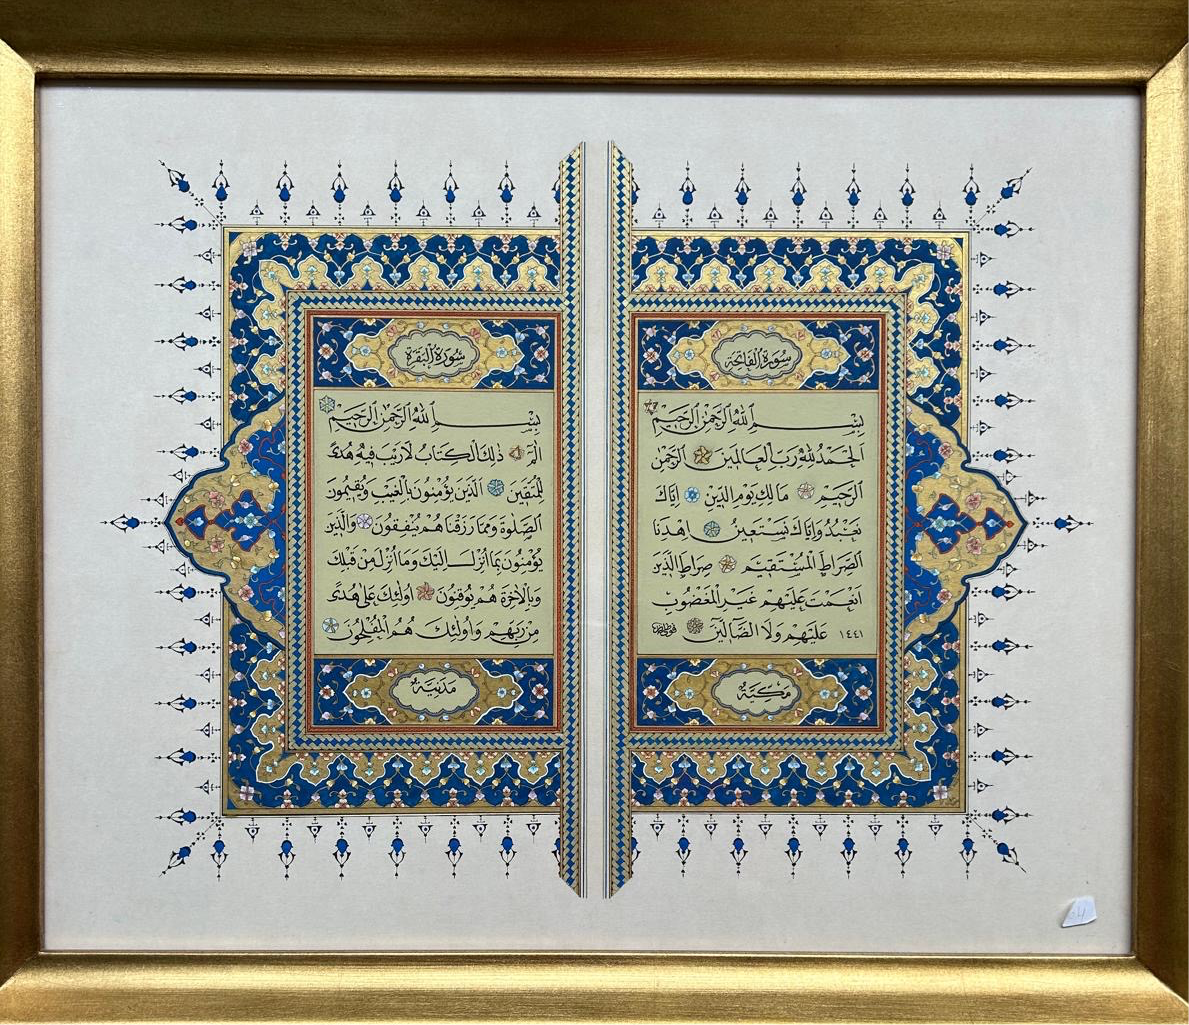 سُورَةُ الفَاتِحَة
بِسْمِ اللهِ الرَّحْمٰنِ الرَّحِيمِ
الْحَمْدُ لِلّٰهِ رَبِّ الْعَالَمِينَ الرَّحْمٰنِ
الرَّحِيمِ مَالِكِ يَوْمِ الدِّينِ اِيَّاكَ
نَعْبُدُ وَاِيَّاكَ نَسْتَعِينُ اِهْدِنَا
الصِّرَاطَ الْمُسْتَقِيمَ صِرَاطَ الَّذِينَ
اَنْعَمْتَ عَلَيْهِمْ غَيْرِ الْمَغْضُوبِ
عَلَيْهِمْ وَلَا الضَّالِّينَ
١٤٤١
مَكِّيَّةٌ
سُورَةُ الْبَقَرَة
بِسْمِ اللهِ الرَّحْمٰنِ الرَّحِيمِ
الٓمٓ ذٰلِكَ الْكِتَابُ لَا رَيْبَ فِيهِ هُدًى
لِلْمُتَّقِينَ الَّذِينَ يُؤْمِنُونَ بِالْغَيْبِ وَيُقِيمُونَ
الصَّلٰوةَ وَمِمَّا رَزَقْنَاهُمْ يُنْفِقُونَ وَالَّذِينَ
يُؤْمِنُونَ بِمَا اُنْزِلَ اِلَيْكَ وَمَا اُنْزِلَ مِنْ قَبْلِكَ
وَبِالْاٰخِرَةِ هُمْ يُوقِنُونَ اُولٰئِكَ عَلٰى هُدًى
مِنْ رَبِّهِمْ وَاُولٰئِكَ هُمُ الْمُفْلِحُونَ
مَدَنِيَّةٌ